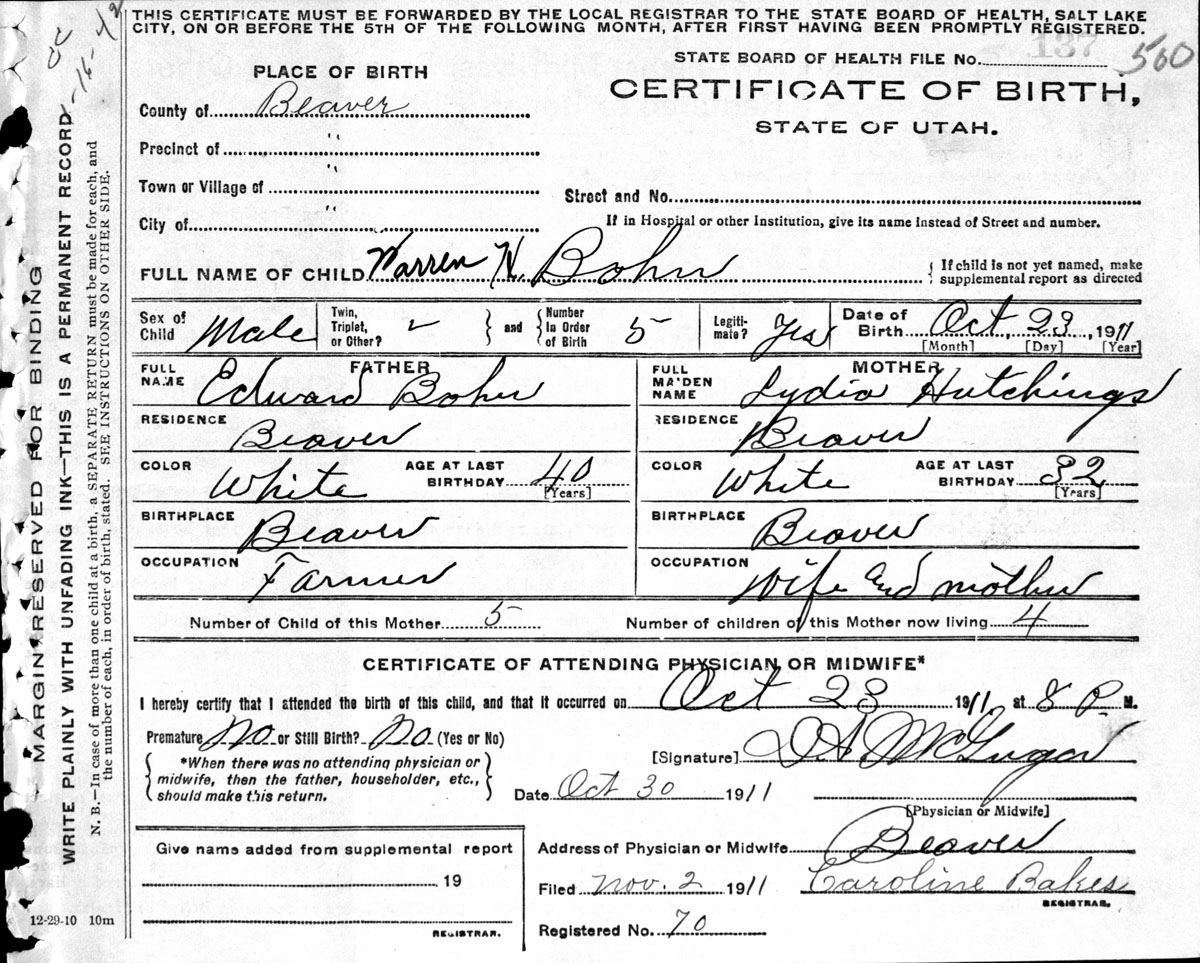 THIS CERTIFICATE MUST BE FORWARDED BY THE LOCAL REGISTRAR TO THE STATE BOARD OF HEALTH, SALT LAKE
CITY, ON OR BEFORE THE 5TH OF THE FOLLOWING MONTH, AFTER FIRST HAVING BEEN PROMPTLY REGISTERED.
137
STATE BOARD OF HEALTH FILE No. 560
CERTIFICATE OF BIRTH,
STATE OF UTAH.
PLACE OF BIRTH
County of Beaver
Precinct of "
Town or Village of "
City of "
Street and No.
If in Hospital or other Institution, give its name instead of Street and number.
FULL NAME OF CHILD Warren H. Bohn
{ If child is not yet named, make
supplemental report as directed
Sex of Child Male
Twin, Triplet, or Other? } and { Number In Order of Birth 5
Legitimate? Yes
Date of Birth Oct 23, 1911
[Month] [Day] [Year]
FATHER
FULL NAME Edward Bohn
RESIDENCE Beaver
COLOR White AGE AT LAST BIRTHDAY 40 [Years]
BIRTHPLACE Beaver
OCCUPATION Farmer
MOTHER
FULL MAIDEN NAME Lydia Hutchings
RESIDENCE Beaver
COLOR White AGE AT LAST BIRTHDAY 32 [Years]
BIRTHPLACE Beaver
OCCUPATION Wife and mother
Number of Child of this Mother 5 Number of children of this Mother now living 4
CERTIFICATE OF ATTENDING PHYSICIAN OR MIDWIFE*
I hereby certify that I attended the birth of this child, and that it occurred on Oct 23 1911 at 8 P M.
Premature No or Still Birth? No (Yes or No)
{ *When there was no attending physician or
midwife, then the father, householder, etc.,
should make this return. }
[Signature]
Date Oct 30 1911
[Physician or Midwife]
Address of Physician or Midwife Beaver
Filed Nov. 2 1911 Caroline Bakes
REGISTRAR.
Registered No. 70
Give name added from supplemental report
19
REGISTRAR.
12-29-10 10m
MARGIN RESERVED FOR BINDING
WRITE PLAINLY WITH UNFADING INK—THIS IS A PERMANENT RECORD
N. B.—In case of more than one child at a birth, a SEPARATE RETURN must be made for each, and
the number of each, in order of birth, stated. SEE INSTRUCTIONS ON OTHER SIDE.